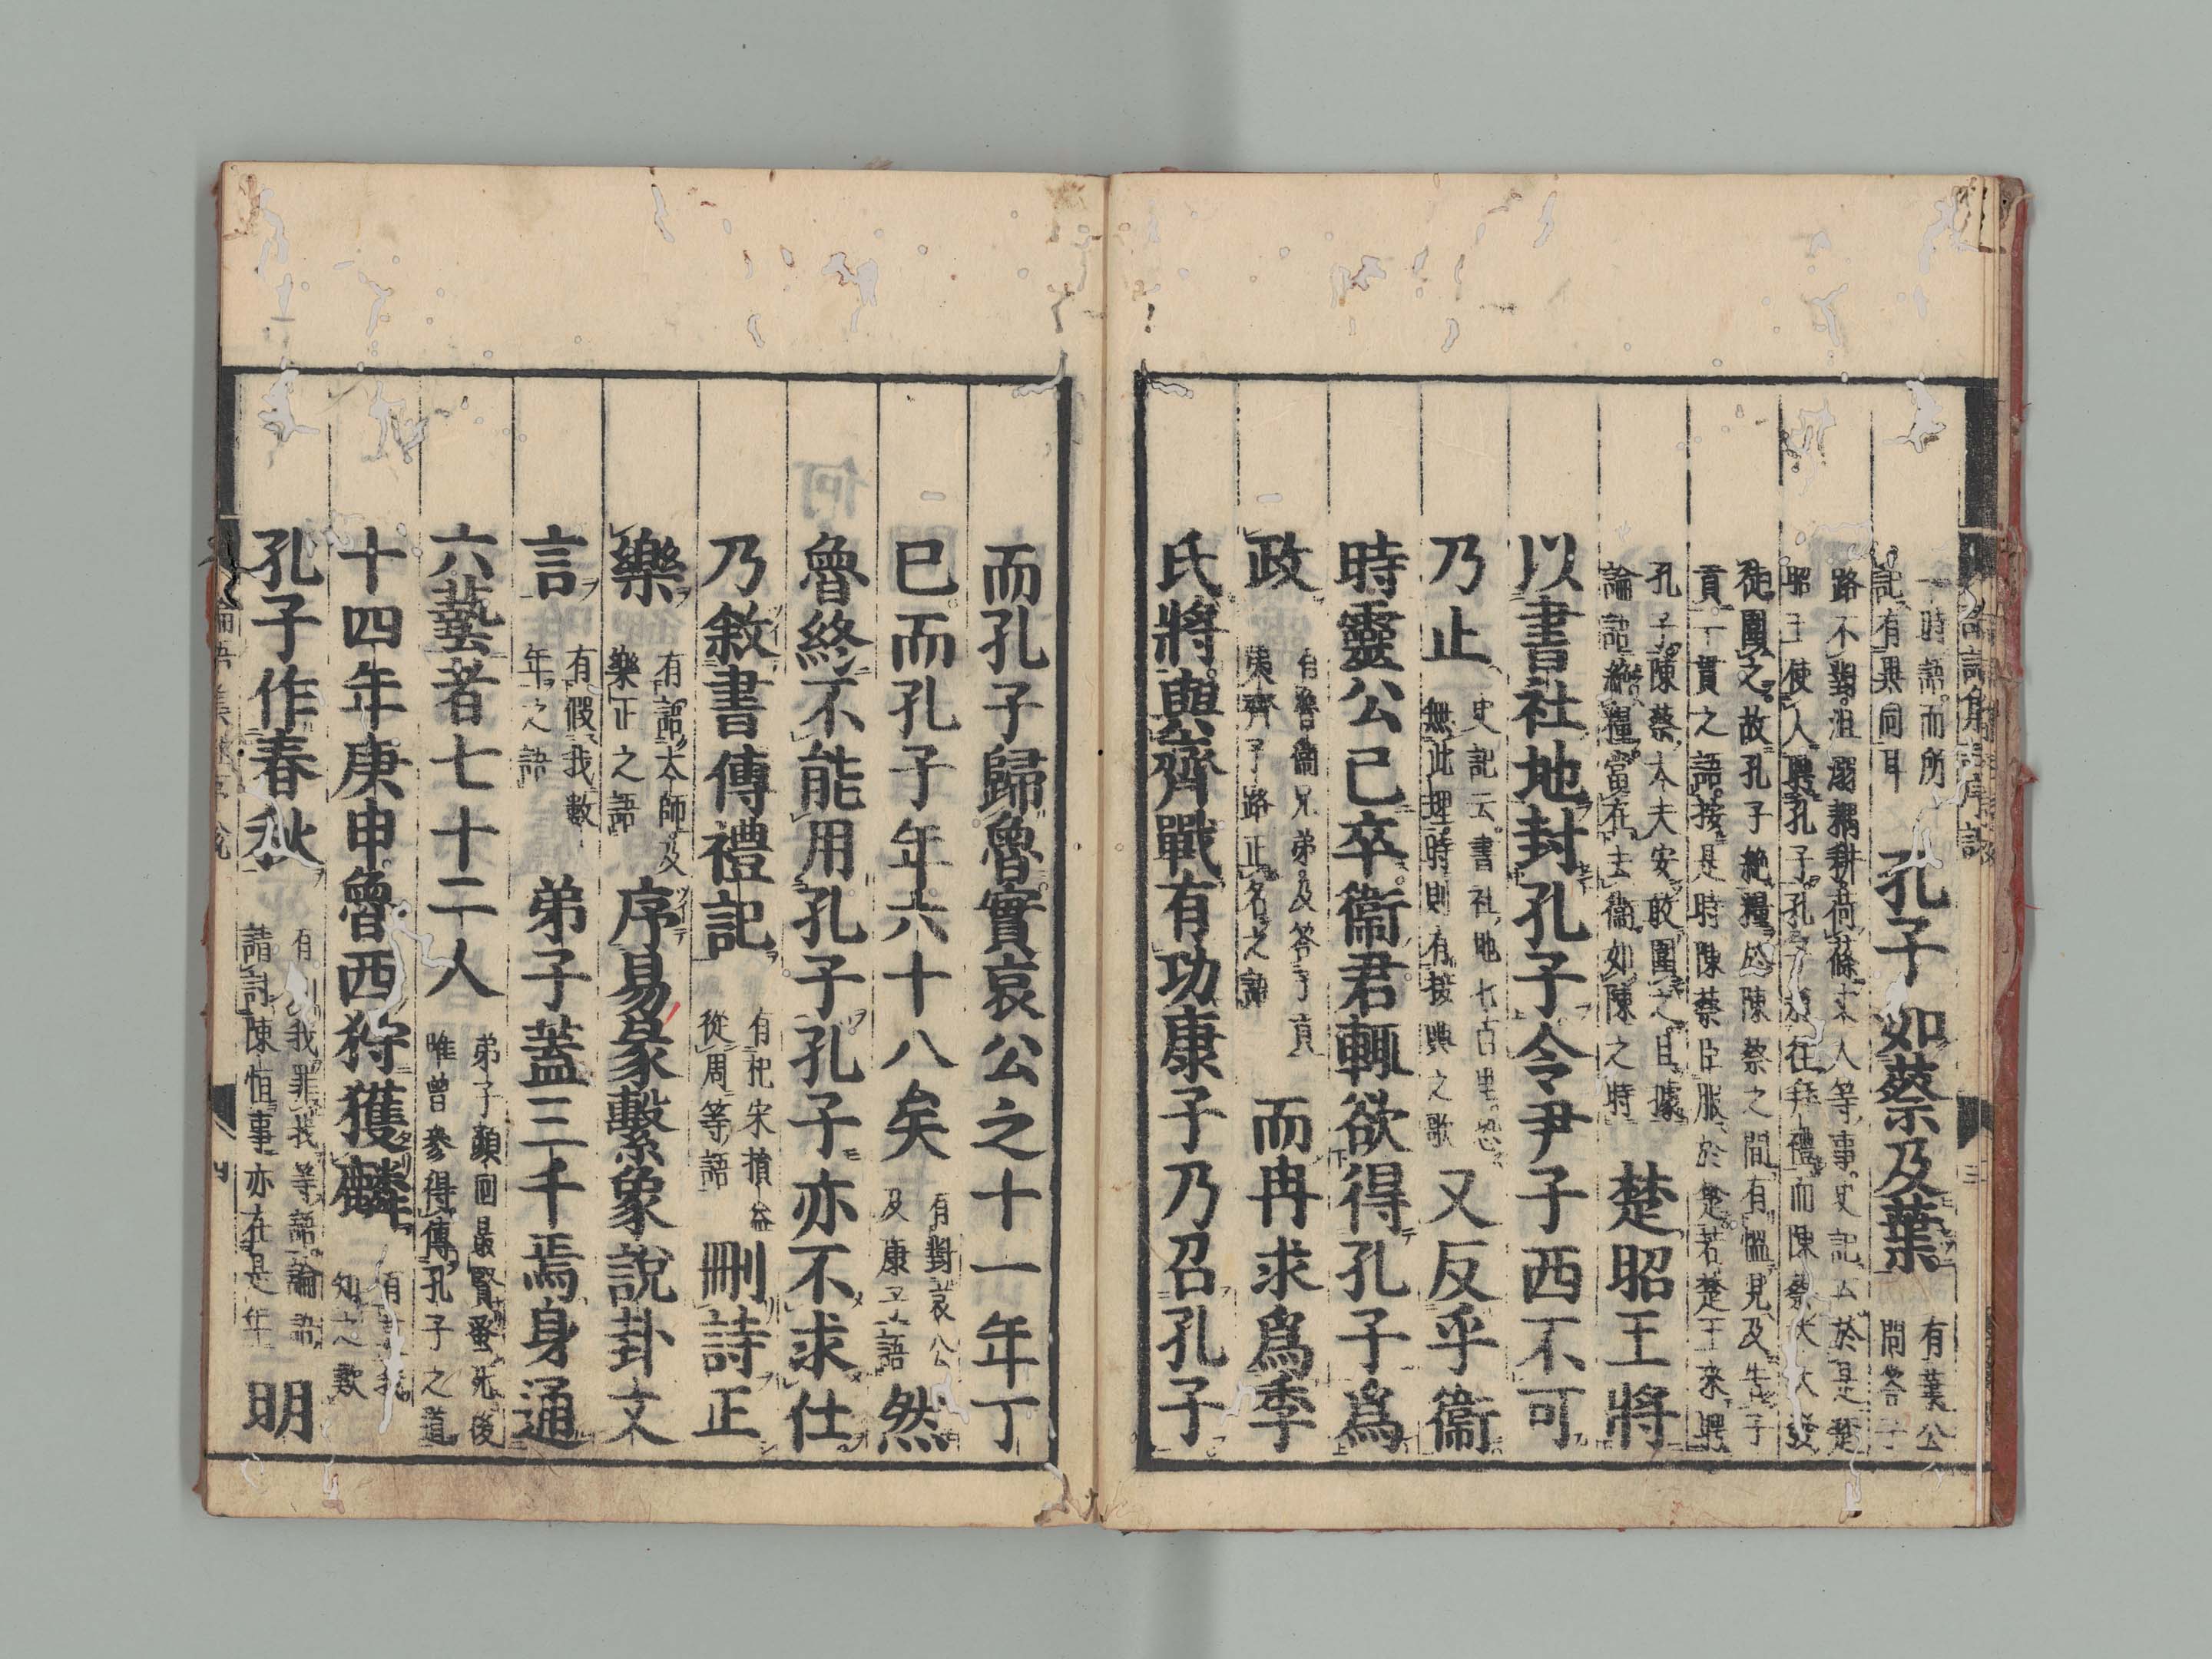 一時語而所
記有異同耳
孔子如蔡及葉
有葉公
問答子
路不對沮溺耦耕荷蓧丈人等事史記云於是楚
昭王使人聘孔子孔子將往拜禮而陳蔡大夫發
徒圍之故孔子絶糧於陳蔡之間有慍見及告子
貢一貫之語按是時陳蔡臣服於楚若楚王來聘
孔子陳蔡大夫安敢圍之且據
論語絶糧當在去衞如陳之時
楚昭王將
以書社地封孔子令尹子西不可
乃止
史記云書社地七百里恐
無此理時則有接輿之歌
又反乎衞
時靈公已卒衞君輒欲得孔子爲
政
有魯衞兄弟及答子貢
夷齊子路正名之語
而冉求爲季
氏將與齊戰有功康子乃召孔子
而孔子歸魯實哀公之十一年丁
巳而孔子年六十八矣
有對哀公
及康子語
然
魯終不能用孔子孔子亦不求仕
乃敘書傳禮記
有杞宋損益
從周等語
刪詩正
樂
有語太師及
樂正之語
序易彖繫象說卦文
言
有假我數
年之語
弟子蓋三千焉身通
六藝者七十二人
弟子顏回最賢蚤死後
唯曾參得傳孔子之道
十四年庚申魯西狩獲麟
有莫我
知之歎
孔子作春秋
有知我罪我等語論語
請討陳恒事亦在是年
明